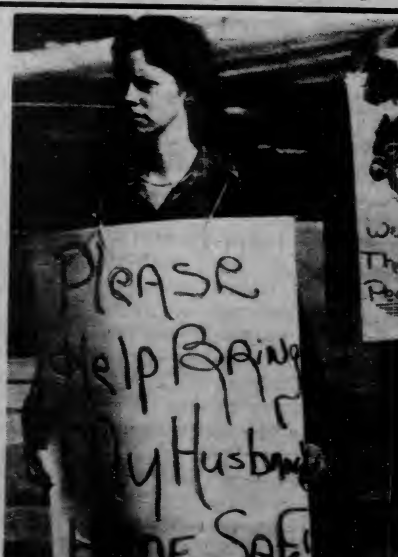 PleASe
Help BRiNg
My HusbAnd
SAFe
We
The